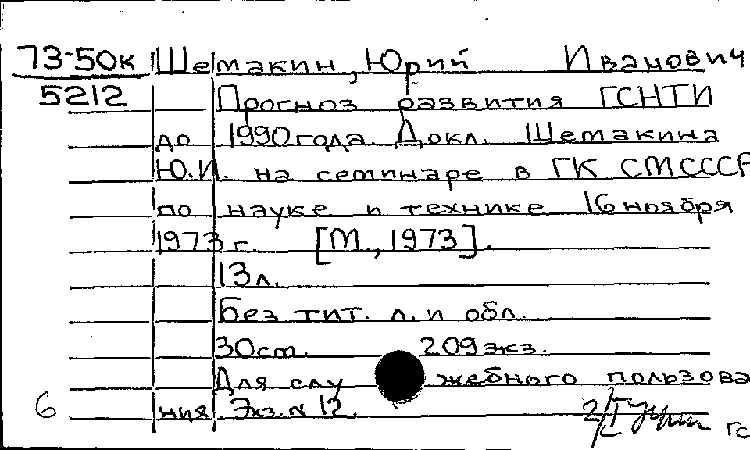 73-50к Шемакин, Юрий Иванович
5212 Прогноз развития ГСНТИ
до 1990 года. Докл. Шемакина
Ю.И. на семинаре в ГК СМСССР
по науке и технике 16 ноября
1973 г. [М., 1973].
13 л.
Без тит. л. и обл.
30 ст. 209 экз.
Для служебного пользова
6 ния. Экз. N 12.
гс